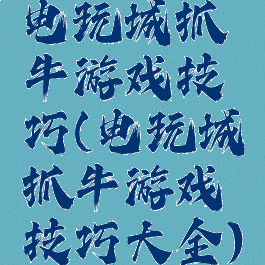 电玩城抓
牛游戏技
巧(电玩城
抓牛游戏
技巧大全)